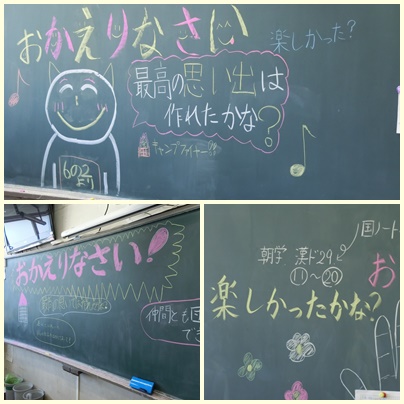 おかえりなさい
楽しかった?
最高の思い出は
作れたかな?
キャンプファイヤー
6の2
より
おかえりなさい!
仲間とも
でき
国ノート
朝学 漢ド29
⑪〜⑳
お
楽しかったかな?